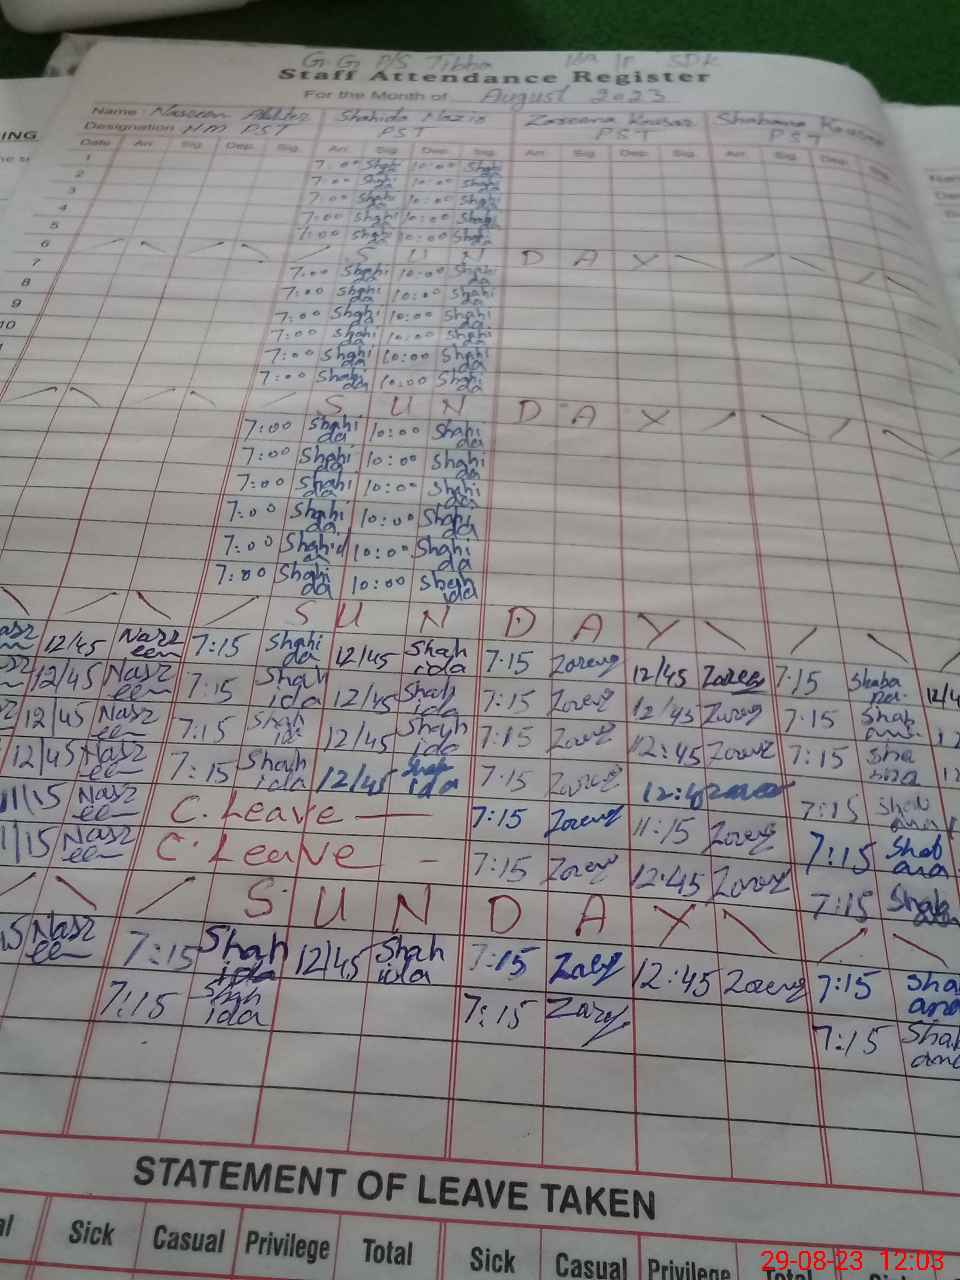 G.G P/S Tibba SDK
Staff Attendance Register
For the Month of August 2023
ING
Name: Naseem Akhter Shahida Nazir Zareena Kousar Shabana Kousar
Designation HM PST PST PST PST
Date Arr. Sig. Dep. Sig. Arr. Sig. Dep. Sig. Arr. Sig. Dep. Sig. Arr. Sig. Dep. Sig.
1 7:00 Shahida 10:00 Shahida
2 7:00 Shahida 10:00 Shahida
3 7:00 Shahida 10:00 Shahida
4 7:00 Shahida 10:00 Shahida
5 7:00 Shahida 10:00 Shahida
6 S U N D A Y
7 7:00 Shahida 10:00 Shahida
8 7:00 Shahida 10:00 Shahida
9 7:00 Shahida 10:00 Shahida
10 7:00 Shahida 10:00 Shahida
7:00 Shahida 10:00 Shahida
7:00 Shahida 10:00 Shahida
S U N D A Y
7:00 Shahida 10:00 Shahida
7:00 Shahida 10:00 Shahida
7:00 Shahida 10:00 Shahida
7:00 Shahida 10:00 Shahida
7:00 Shahida 10:00 Shahida
7:00 Shahida 10:00 Shahida
S U N D A Y
12/45 Nasreen 7:15 Shahida 12/45 Shahida 7:15 Zareeng 12/45 Zareena 7:15 Shabana 12/4
12/45 Nasreen 7:15 Shahida 12/45 Shahida 7:15 Zareeng 12/45 Zareeng 7:15 Shabana 12
12/45 Nasreen 7:15 Shahida 12/45 Shahida 7:15 Zareeng 12:45 Zareeng 7:15 Shabana 12
12/45 Nasreen 7:15 Shahida 12/45 Shahida 7:15 Zareeng 12:4 7:15 Shabana
11/15 Nasreen C. Leave 7:15 Zareeng 11:15 Zareeng 7:15 Shabana
1/15 Nasreen C. Leave 7:15 Zareeng 12:45 Zareeng 7:15 Shabana
S U N D A Y
Nasreen 7:15 Shahida 12/45 Shahida 7:15 12:45 Zareeng 7:15 Shaana
7:15 Shahida 7:15 7:15 Shabana
STATEMENT OF LEAVE TAKEN
al Sick Casual Privilege Total Sick Casual Privilege Total
29-08-23 12:03